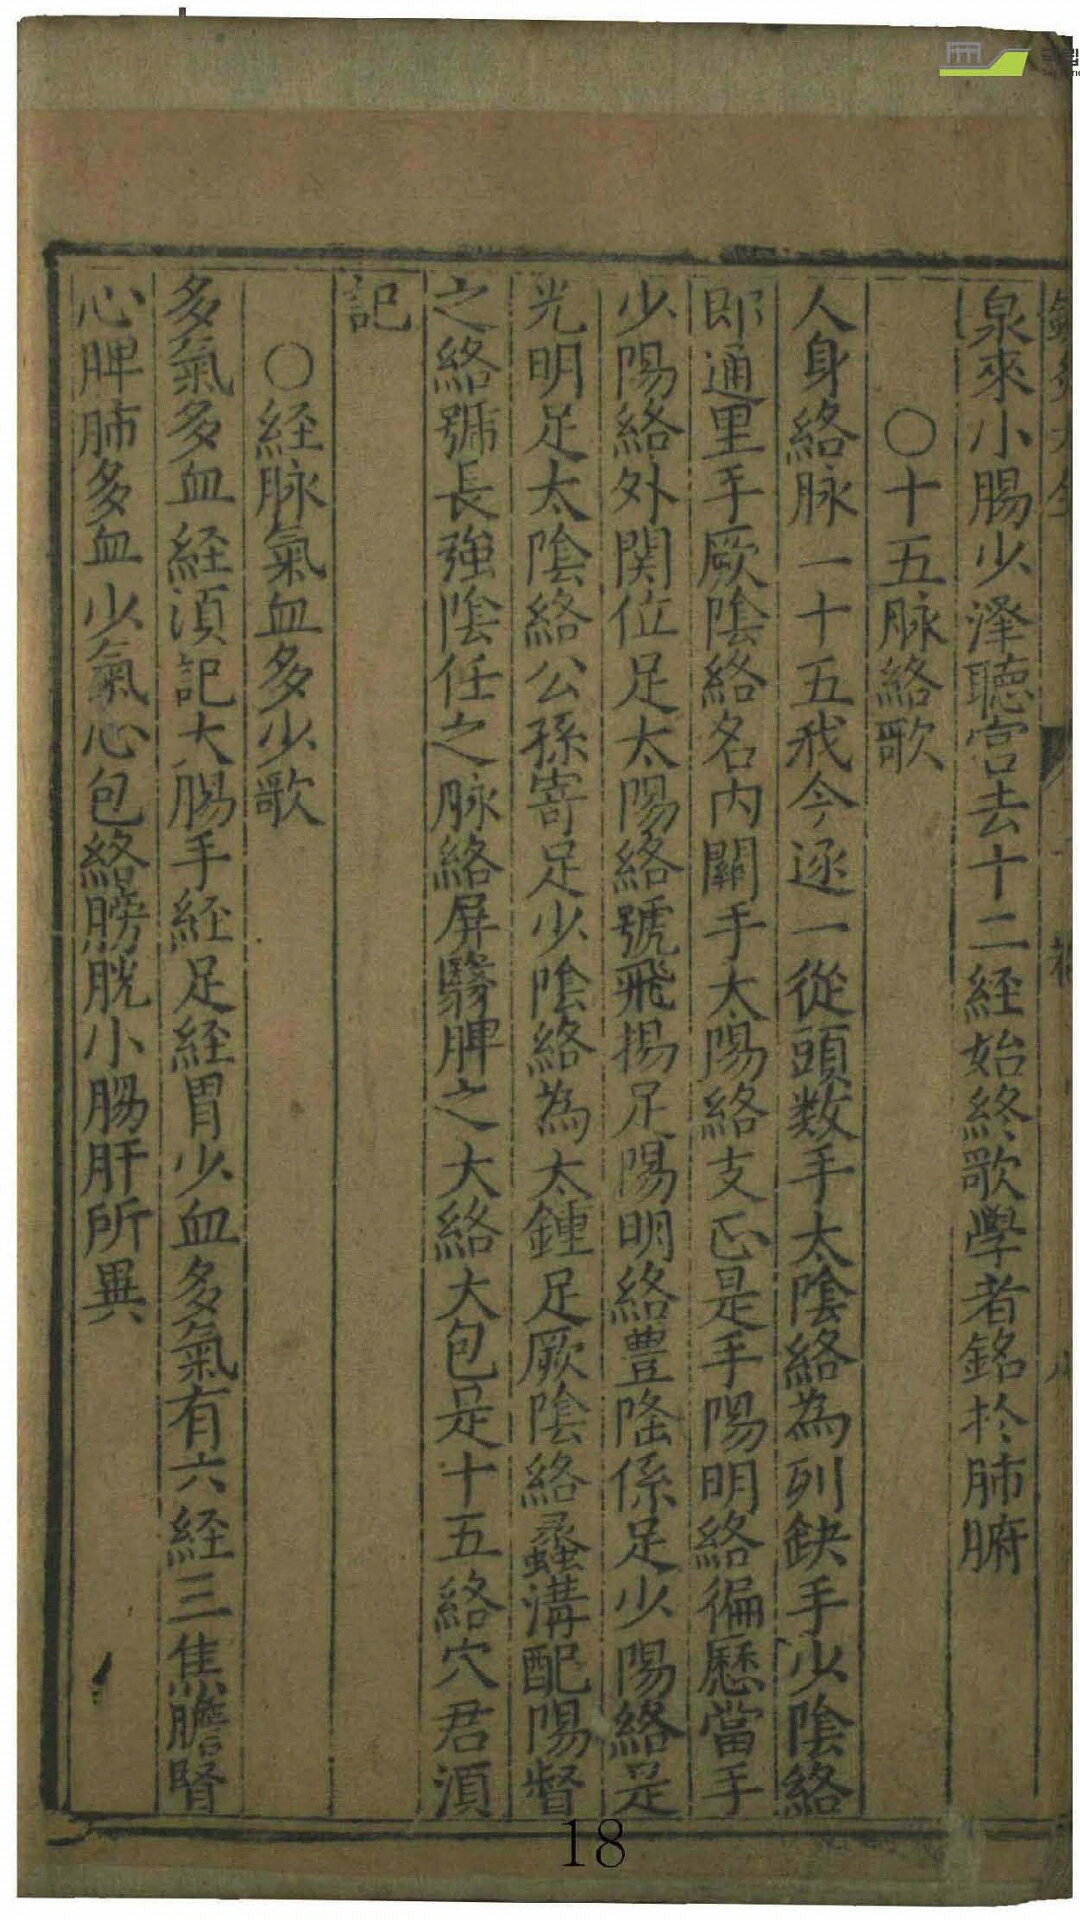 泉來小腸少澤聽宮去十二経始終歌學者銘於肺腑
○十五脉絡歌
人身絡脉一十五我今逐一從頭数手太陰絡為列缺手少陰絡
即通里手厥陰絡名內關手太陽絡支正是手陽明絡徧歷當手
少陽絡外関位足太陽絡號飛揚足陽明絡豊隆係足少陽絡是
光明足太陰絡公孫寄足少陰絡為太鍾足厥陰絡蠡溝配陽督
之絡號長強陰任之脉絡屏翳脾之大絡大包是十五絡穴君須
記
○経脉氣血多少歌
多氣多血経須記大腸手経足経胃少血多氣有六経三焦膽腎
心脾肺多血少氣心包絡膀胱小腸肝所異
18